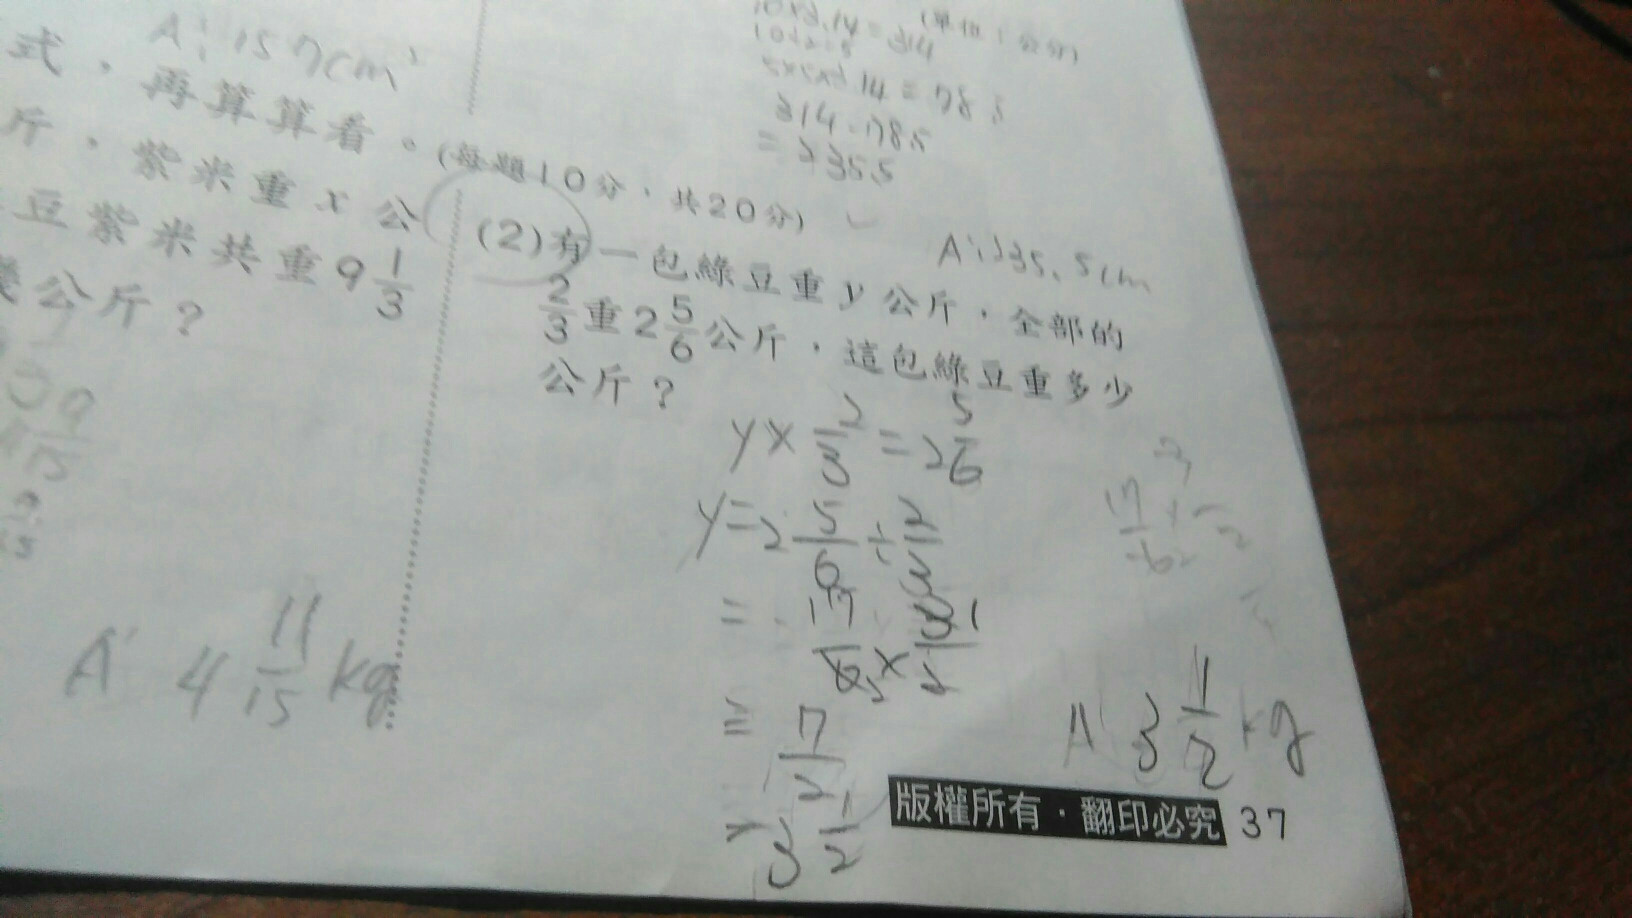 A: 157cm²
式，再算算看。(每題10分，共20分)
斤，紫米重x公
豆紫米共重9 1/3
公斤？
A: 4 11/15 kg
(單位：公分)
10x3.14=314
5x5x3.14=78.5
314-78.5
=235.5
A: 235.5cm
(2)有一包綠豆重y公斤，全部的
2/3重2 5/6公斤，這包綠豆重多少
公斤？
y x 2/3 = 2 5/6
y = 2 5/6 ÷ 2/3
= 17/6 x 3/2
= 7/2
= 3 1/2
A: 3 1/2 kg
版權所有・翻印必究 37